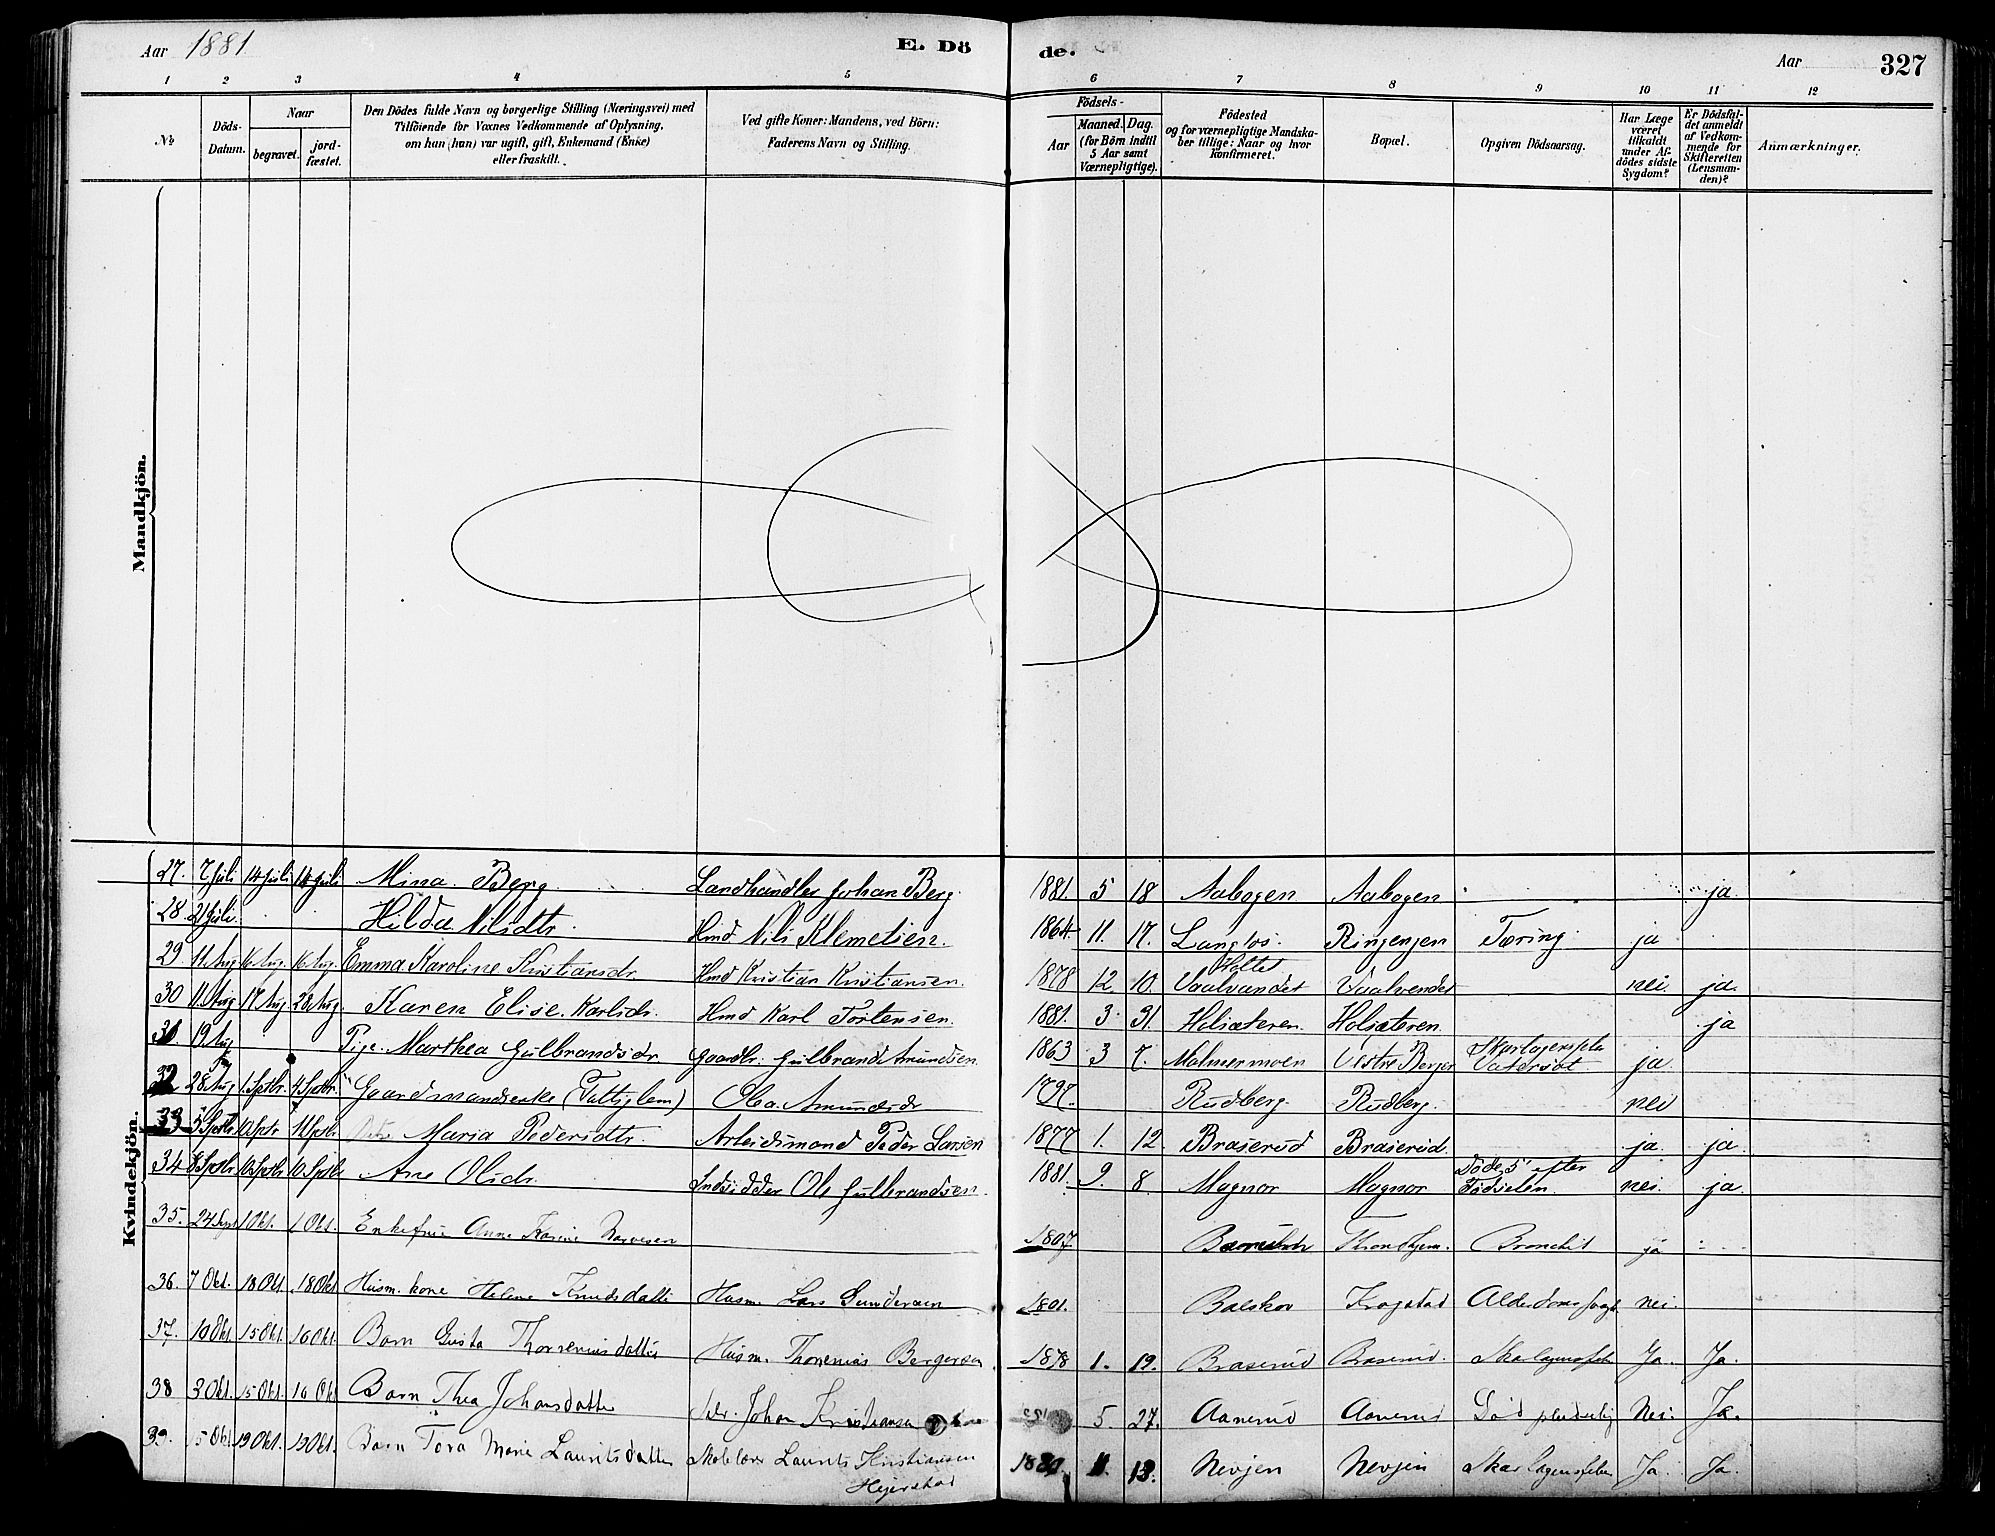 Aar 1881 E. Dö de. Aar 327
1 2 3 4 5 6 7 8 9 10 11 12
No Döds-Datum. Naar begravet. jordfæstet. Den Dödes fulde Navn og borgerlige Stilling (Næringsvei) med Tilföiende for Voxnes Vedkommende af Oplysning, om han (hun) var ugift, gift, Enkemand (Enke) eller fraskilt. Ved gifte Koner: Mandens, ved Börn: Faderens Navn og Stilling. Födsels- Aar Maaned. Dag. (for Børn indtil 5 Aar samt Værnepligtige). Födested og for værnepligtige Mandskaber tillige: Naar og hvor konfirmeret. Bopæl. Opgiven Dödsaarsag. Har Læge været tilkaldt under Afdödes sidste Sygdom? Er Dödsfaldet anmeldt af Vedkommende for Skifteretten (Lensmanden)? Anmærkninger.
Mandkjön.
Kvindekjön.
27. 7 Juli 14 Juli 14 Juli Mina Berg Landhandler Johan Berg. 1881. 5 18 Aabogen Aabogen ja
28 21 Juli. Hilda Nilsdtr. Hmd Nils Klemetsen. 1864 11. 17. Langlos. Tæring. ja
29 11 Aug 16 Aug. 16 Aug. Emma Karoline Kristiansdr Hmd Kristian Kristiansen. 1878 12 10. Holtet Vaalvandet Vaalvendet nei ja.
30 11. Aug 17 Aug 28 Aug. Karen Elise Karlsdr. Hmd Karl Tostensen. 1881. 3 31. Holsæteren. Holsæteren. ja
31 19 Aug Pige. Marthea Gulbrandsdr. Gaardbr. Gulbrand Amundsen 1863 3 7. Malmermoen Vestre Berger ja.
32 28 Aug 1. Sptbr. 4 Sptbr. Gaardmandsenke (Fattiglem) Olea Amundsdr 1797. Rudberg. Rudberg. nei
33 5 Sptbr 10 Sptr 11 Sptbr. Maria Pedersdtr. Arbeidsmand Peder Larsen 1877 1. 12. Braserud Braserud. ja. ja.
34 8 Sptbr 10 Sptbr 10. Sptbr Ane Olsdr. Indsidder Ole Gulbrandsen. 1881. 9. 8. Magnor Magnor Døde 5 efter Fødselen. nei. ja.
35. 24 Sept 1 Okt. 1 Okt. Enkefrue Anne Karine 1807 Bronchit ja
36. 7 Okt. 18 Okt. 18 Okt Husm. kone Helene Knudsdatter Husm. Lars Gundersen 1801. Balskov Krogstad nei.
37. 10 Okt. 15 Okt. 16 Okt. Barn Gusta Thorvenius datter Husm. Thorvenius Bergersen 1878 1. 19. Braserud Braserud. Skarlagensfeber Ja. Ja.
38 3 Okt. 15 Okt. 16 Okt Barn Thea Johansdatter Selv. Johan Kristiansen 5. 27. Aanerud Aanerud Død pludselig Nei. Ja.
39. 15 Okt 19 Okt. 19 Okt. Barn Tora Marie Lauritsdatter Skolelærer Laurits Kristiansen 11. 13. Nevjen Nevjen Skarlagensfeber Ja. Ja.